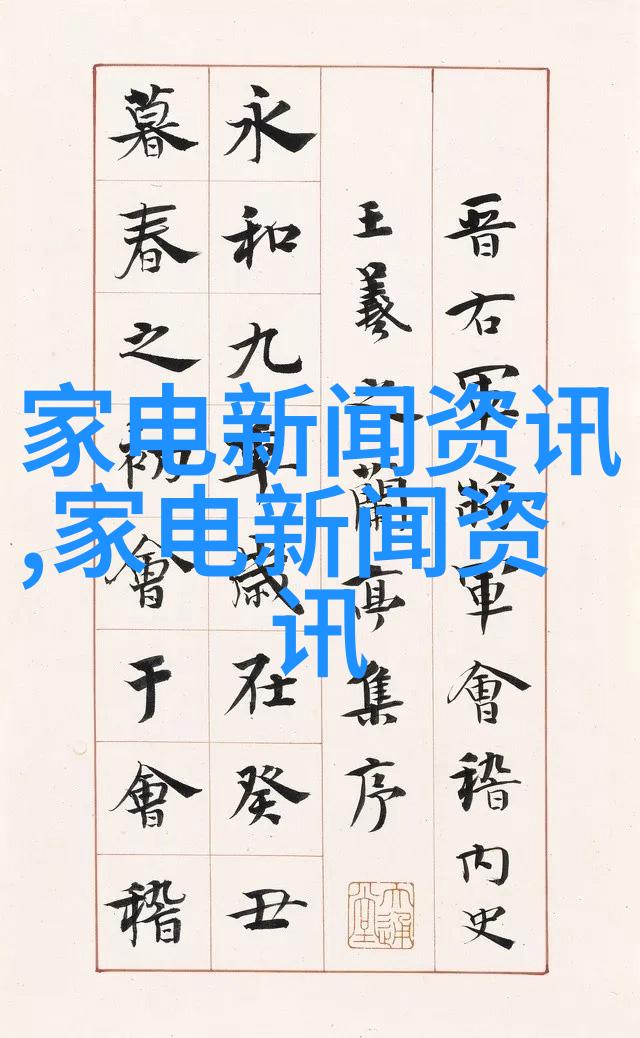 晋右軍將軍會稽内史
王羲之蘭亭集序
永和九年歲在癸丑
暮春之初會于會稽
家电新闻资讯
,家电新闻资
讯